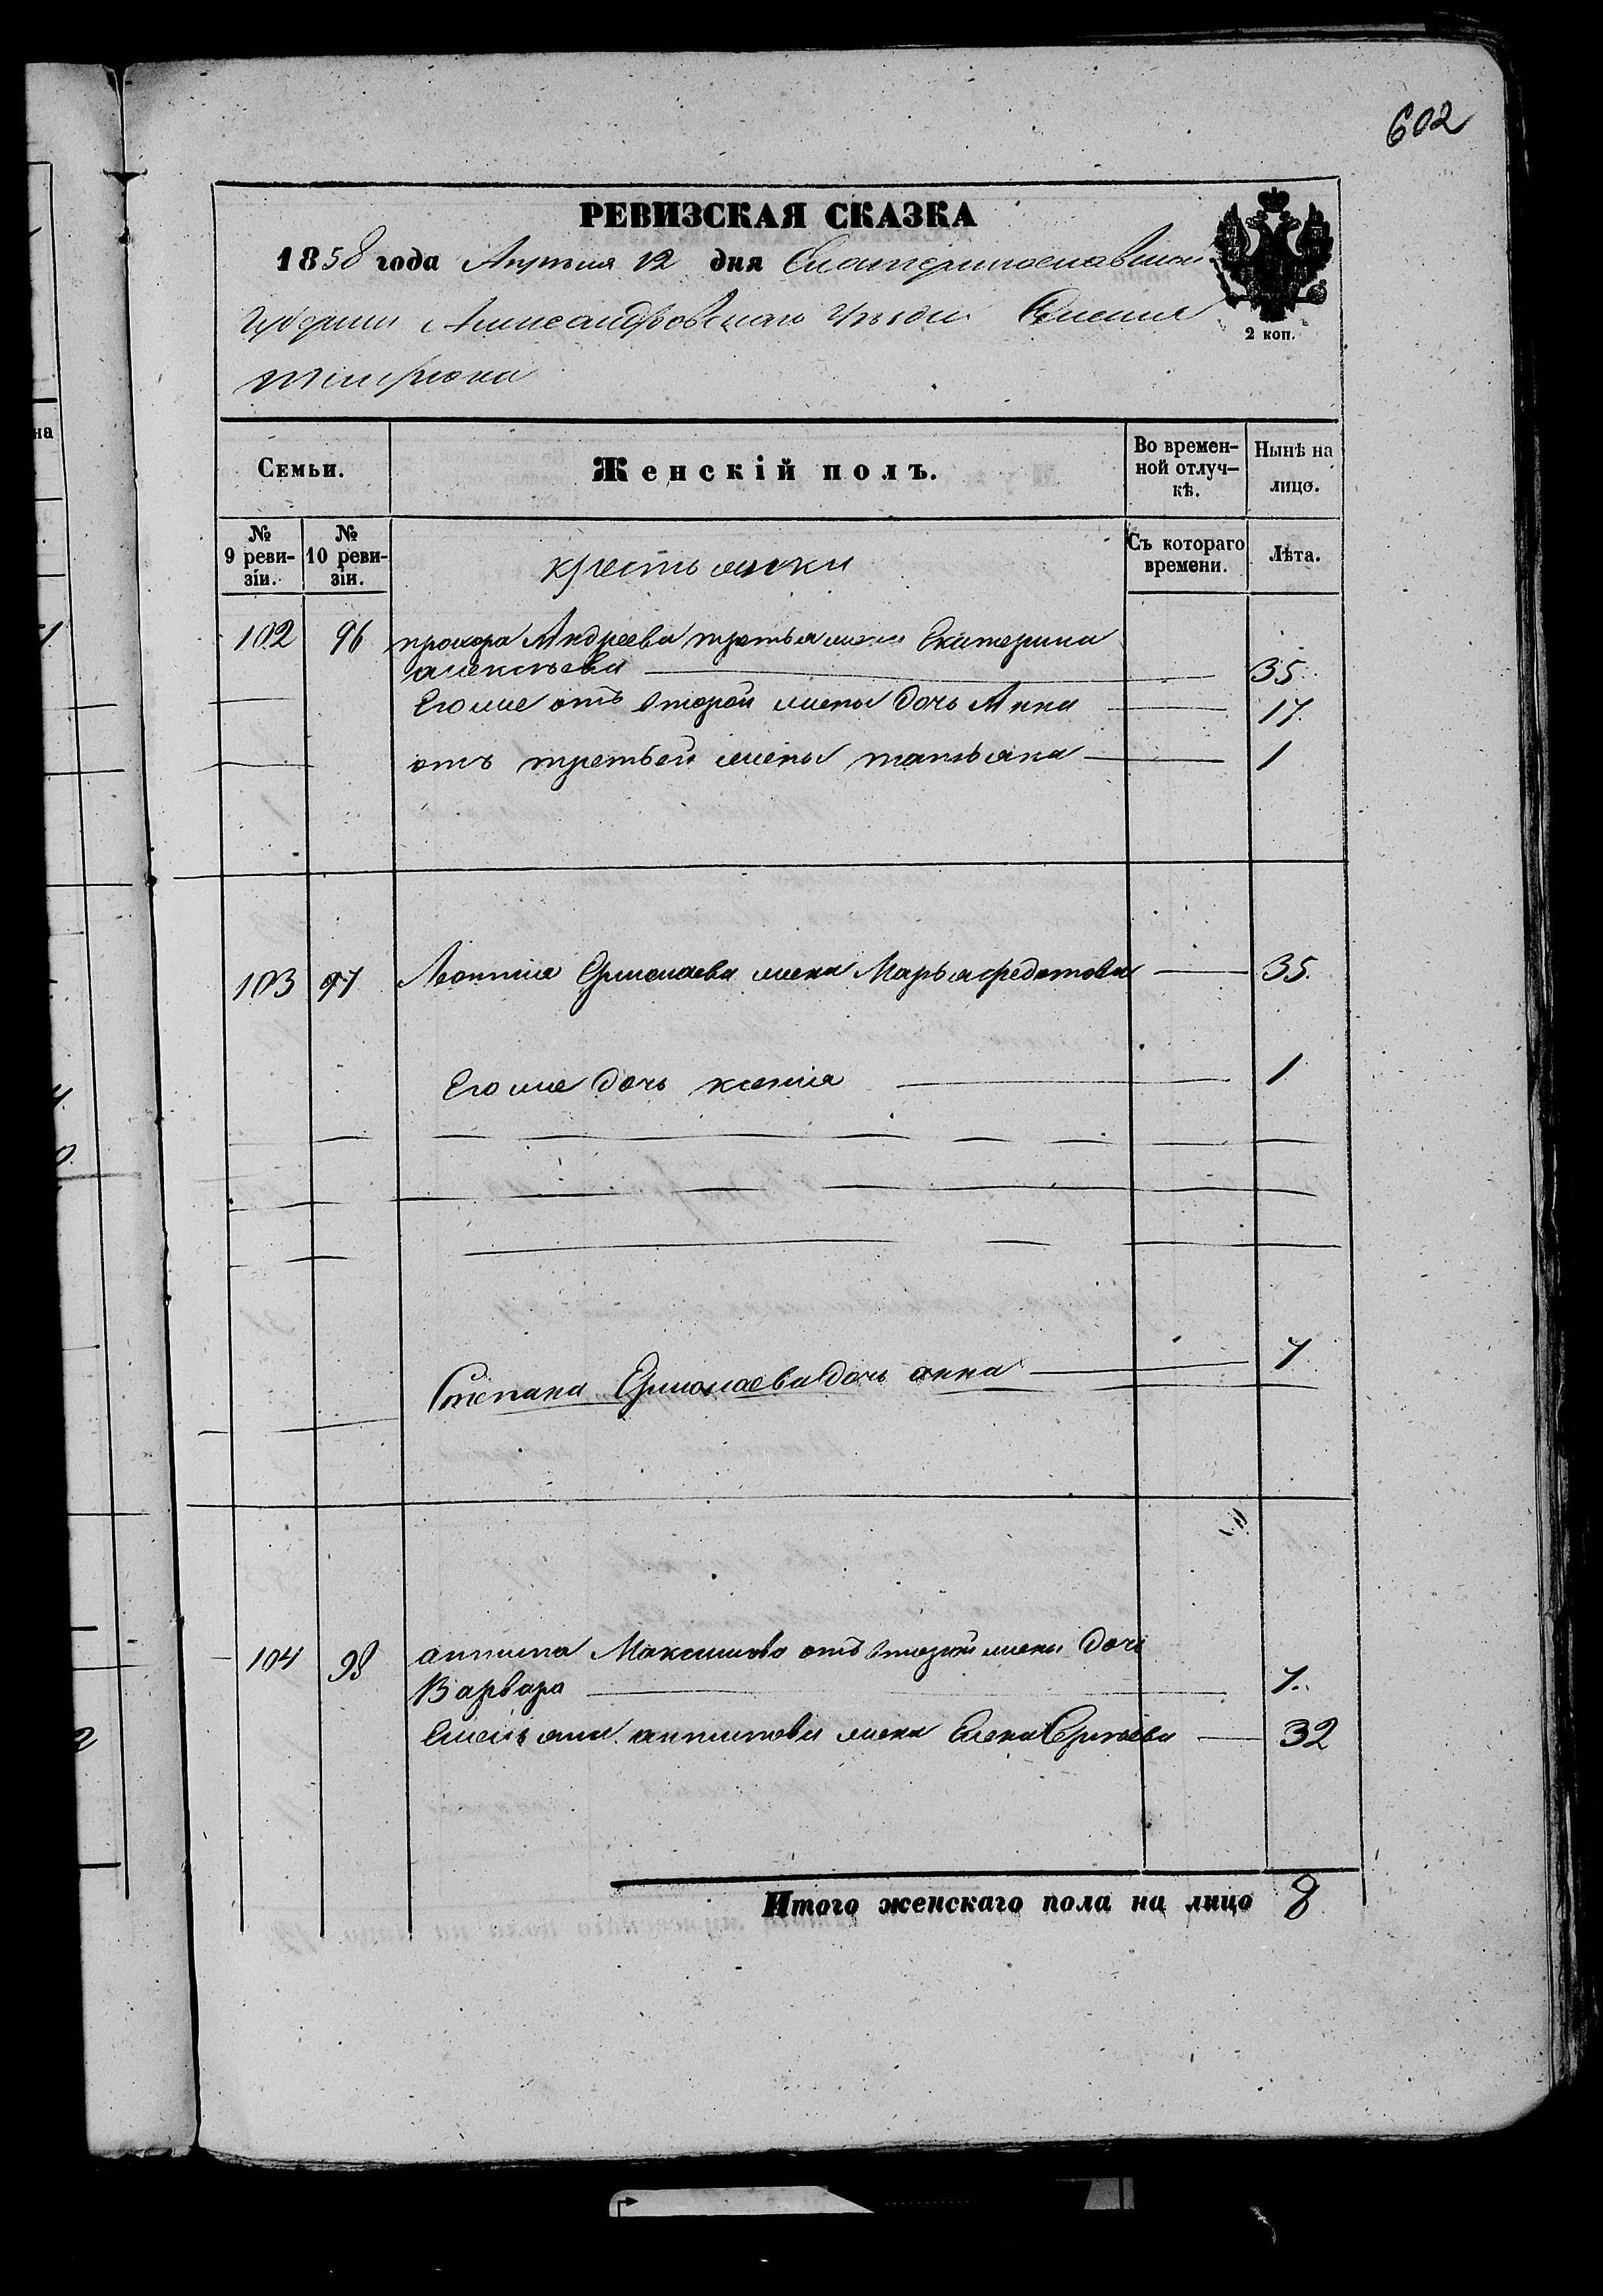 602
РЕВИЗСКАЯ СКАЗКА
1858 года Апреля 12 дня Екатеринославской
Губернии Александровскаго Уезда Селения
Темрюка
2 коп.
на
Семьи.
Женскій полъ.
Во времен-
ной отлуч-
кѣ.
Нынѣ на
лицо.
№
9 реви-
зіи.
№
10 реви-
зіи.
крестьянки
Съ котораго
времени.
Лѣта.
102 96 прохора Андреева третья жена Екатерина
алексѣева 35.
Его же отъ второй жены дочь Анна 17.
отъ третьей жены татьяна 1
103 97 Леонтия Ермолаева жена Марья федотова 35.
Его же дочь ксения 1
Степана Ермолаева дочь анна 7
104 98 антипа Максимова отъ второй жены дочь
Варвара 7.
Емельяна антипова жена Елена Сергѣева 32
Итого женскаго пола на лицо 8